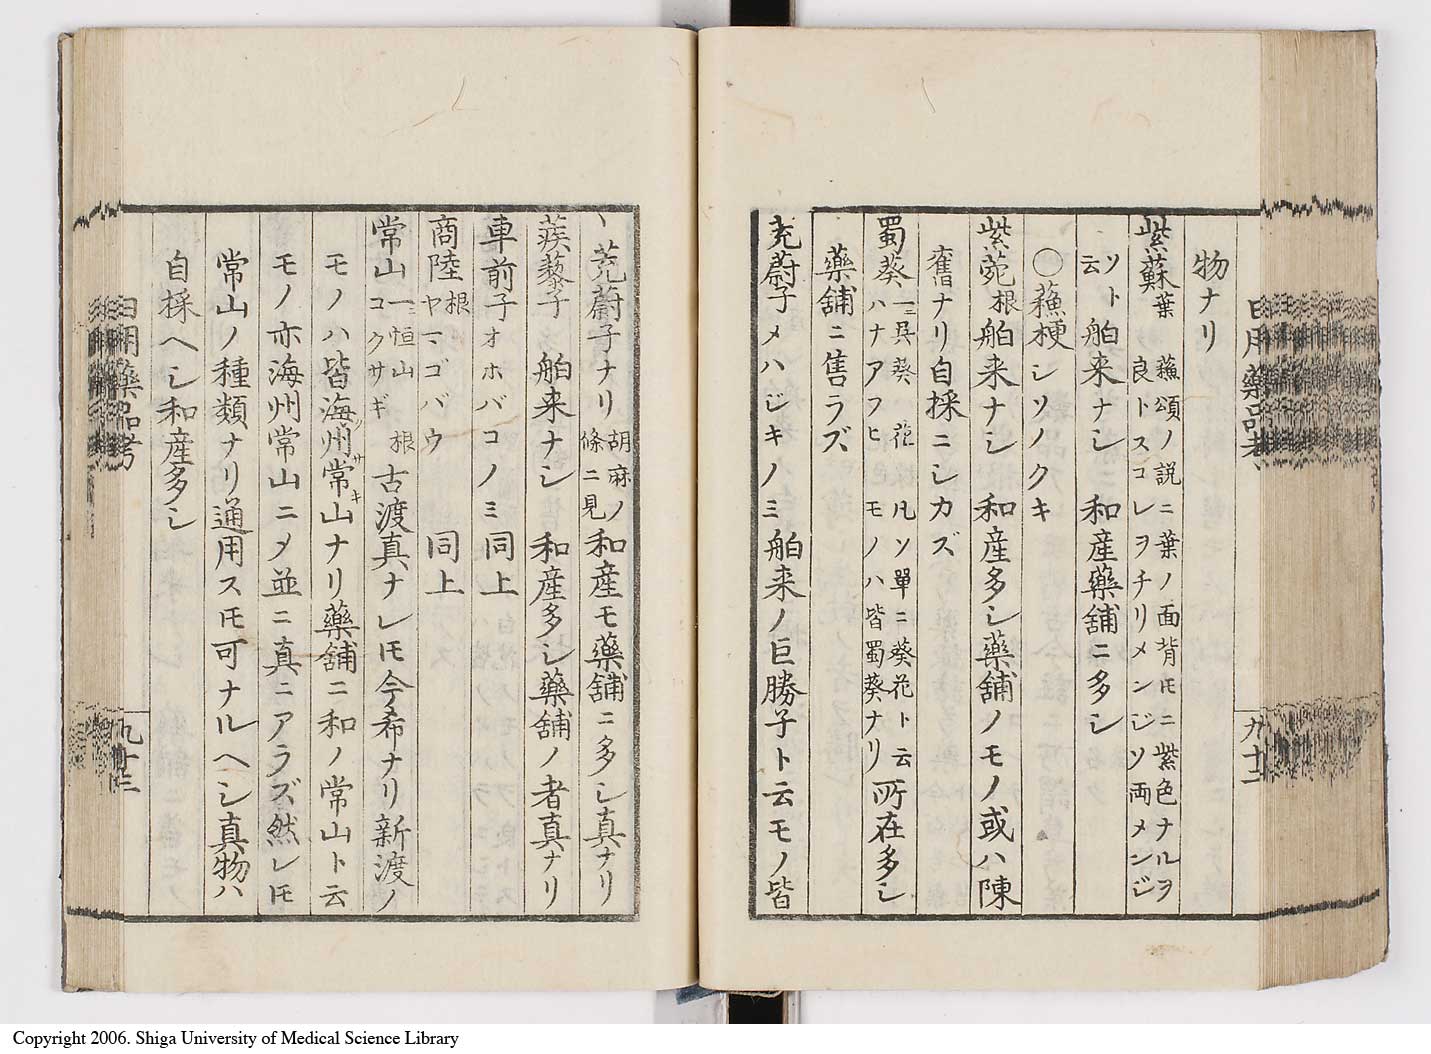 物ナリ
紫蘇葉 蘓頌ノ説ニ葉ノ面背𪜈ニ紫色ナルヲ
良トスコレヲチリメンジソ両メンジ
ソト云 舶来ナシ 和産藥舗ニ多シ
○蘓梗シソノクキ
紫菀根 舶来ナシ 和産多シ藥舗ノモノ或ハ陳
舊ナリ自採ニシカズ
蜀葵一ニ呉葵ハナアフヒ 凡ソ單ニ葵花ト云モノハ皆蜀葵ナリ 所在多シ
藥舗ニ售ラズ
茺蔚子メハジキノミ 舶来ノ巨勝子ト云モノ皆
日用藥品考
九十二
茺蔚子ナリ胡麻ノ條ニ見 和産モ藥舗ニ多シ真ナリ
蒺藜子 舶来ナシ 和産多シ藥舗ノ者真ナリ
車前子オホバコノミ 同上
商陸根ヤマゴバウ 同上
常山一ニ恒山コクサギ根 古渡真ナレ𪜈今希ナリ新渡ノ
モノハ皆海州常山ナリ藥舗ニ和ノ常山ト云
モノ亦海州常山ニメ並ニ真ニアラズ然レ𪜈
常山ノ種類ナリ通用ス𪜈可ナルヘシ真物ハ
自採ヘシ和産多シ
日用藥品考
九十三
Copyright 2006. Shiga University of Medical Science Library